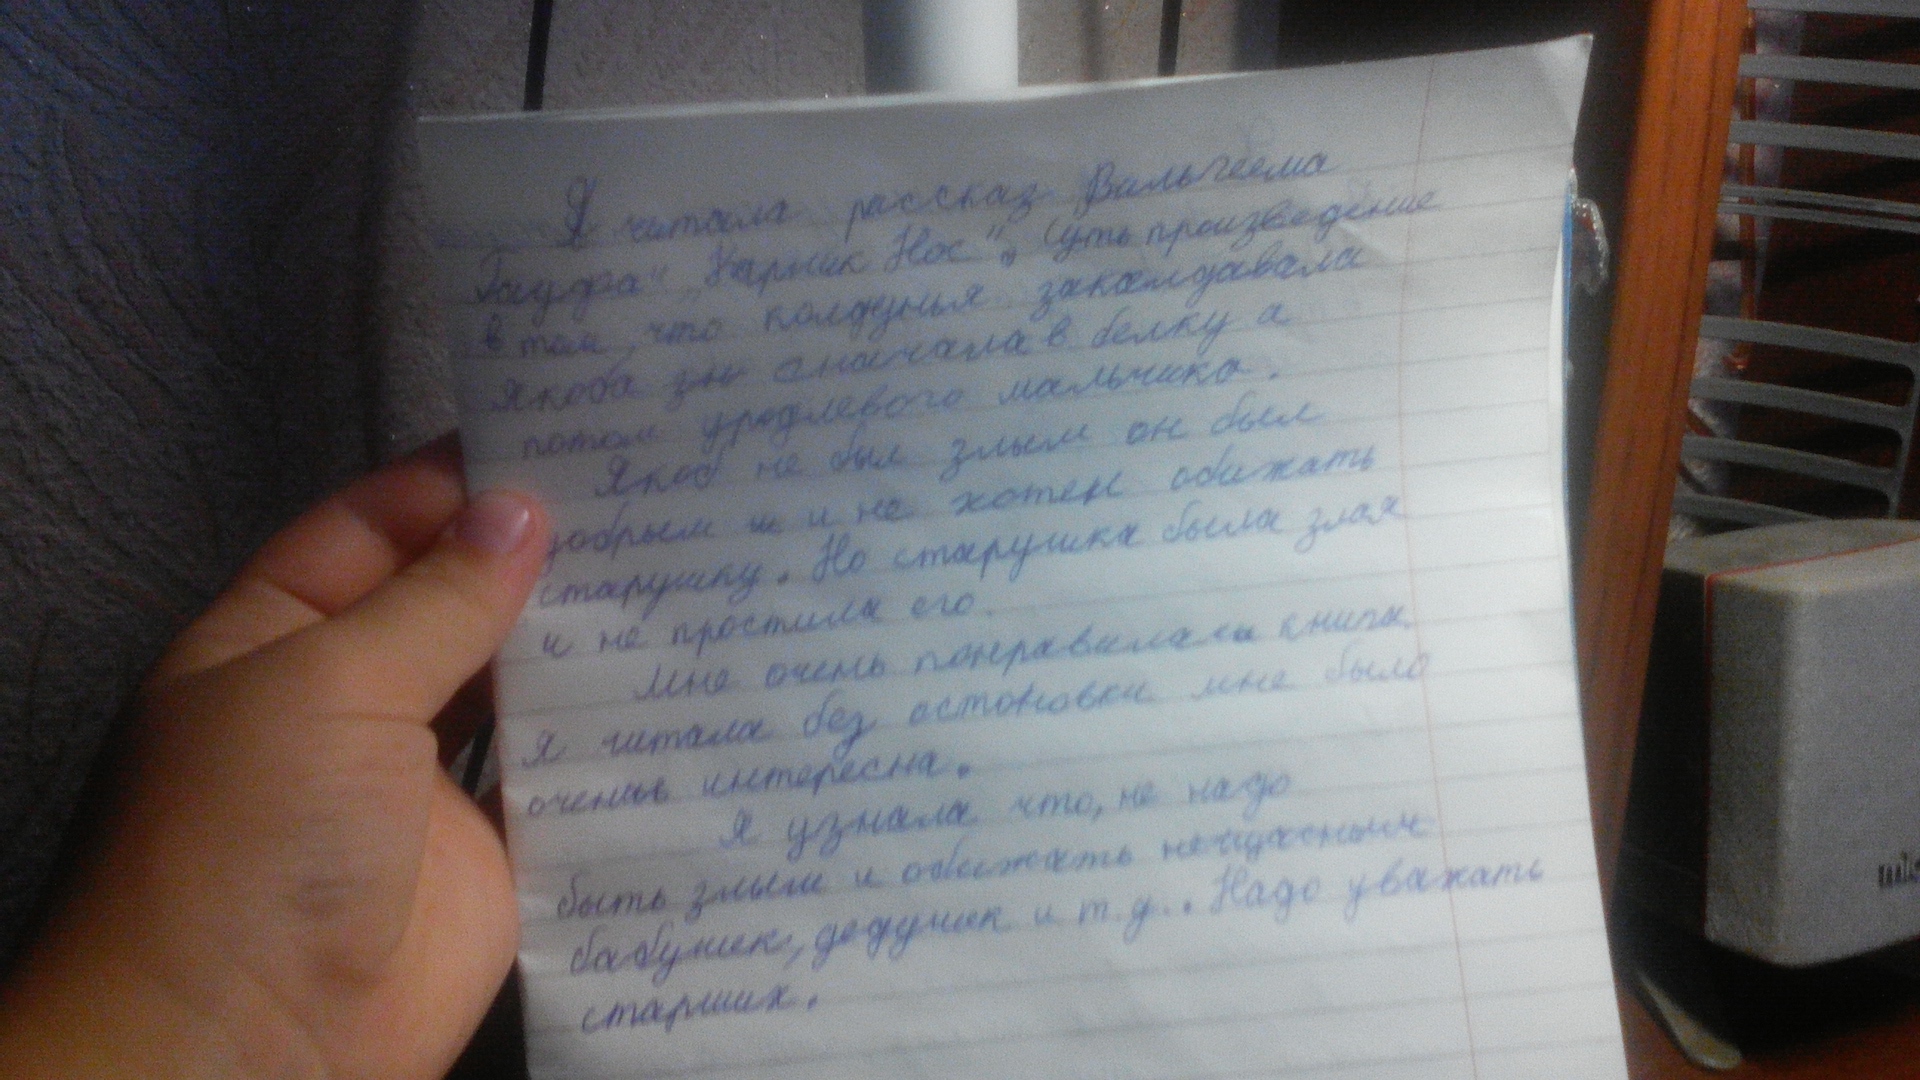 Я читала рассказ Вильгеема
Гауфа" „Карлик Нос". Суть произведение
в том, что колдунья закалдавала
Якоба зн сначала в белку а
потом уродлевого мальчика.
Якоб не был злым он был
добрым ш и не хотел обижать
старушку. Но старушка была злая
и не простила его.
Мне очень понравилась книга
я читала без остоновки мне было
оченье интересна.
Я узнала что, не надо
быть злым и обижать нещасными
бабушек, дедушек и т.д.. Надо уважать
старших.